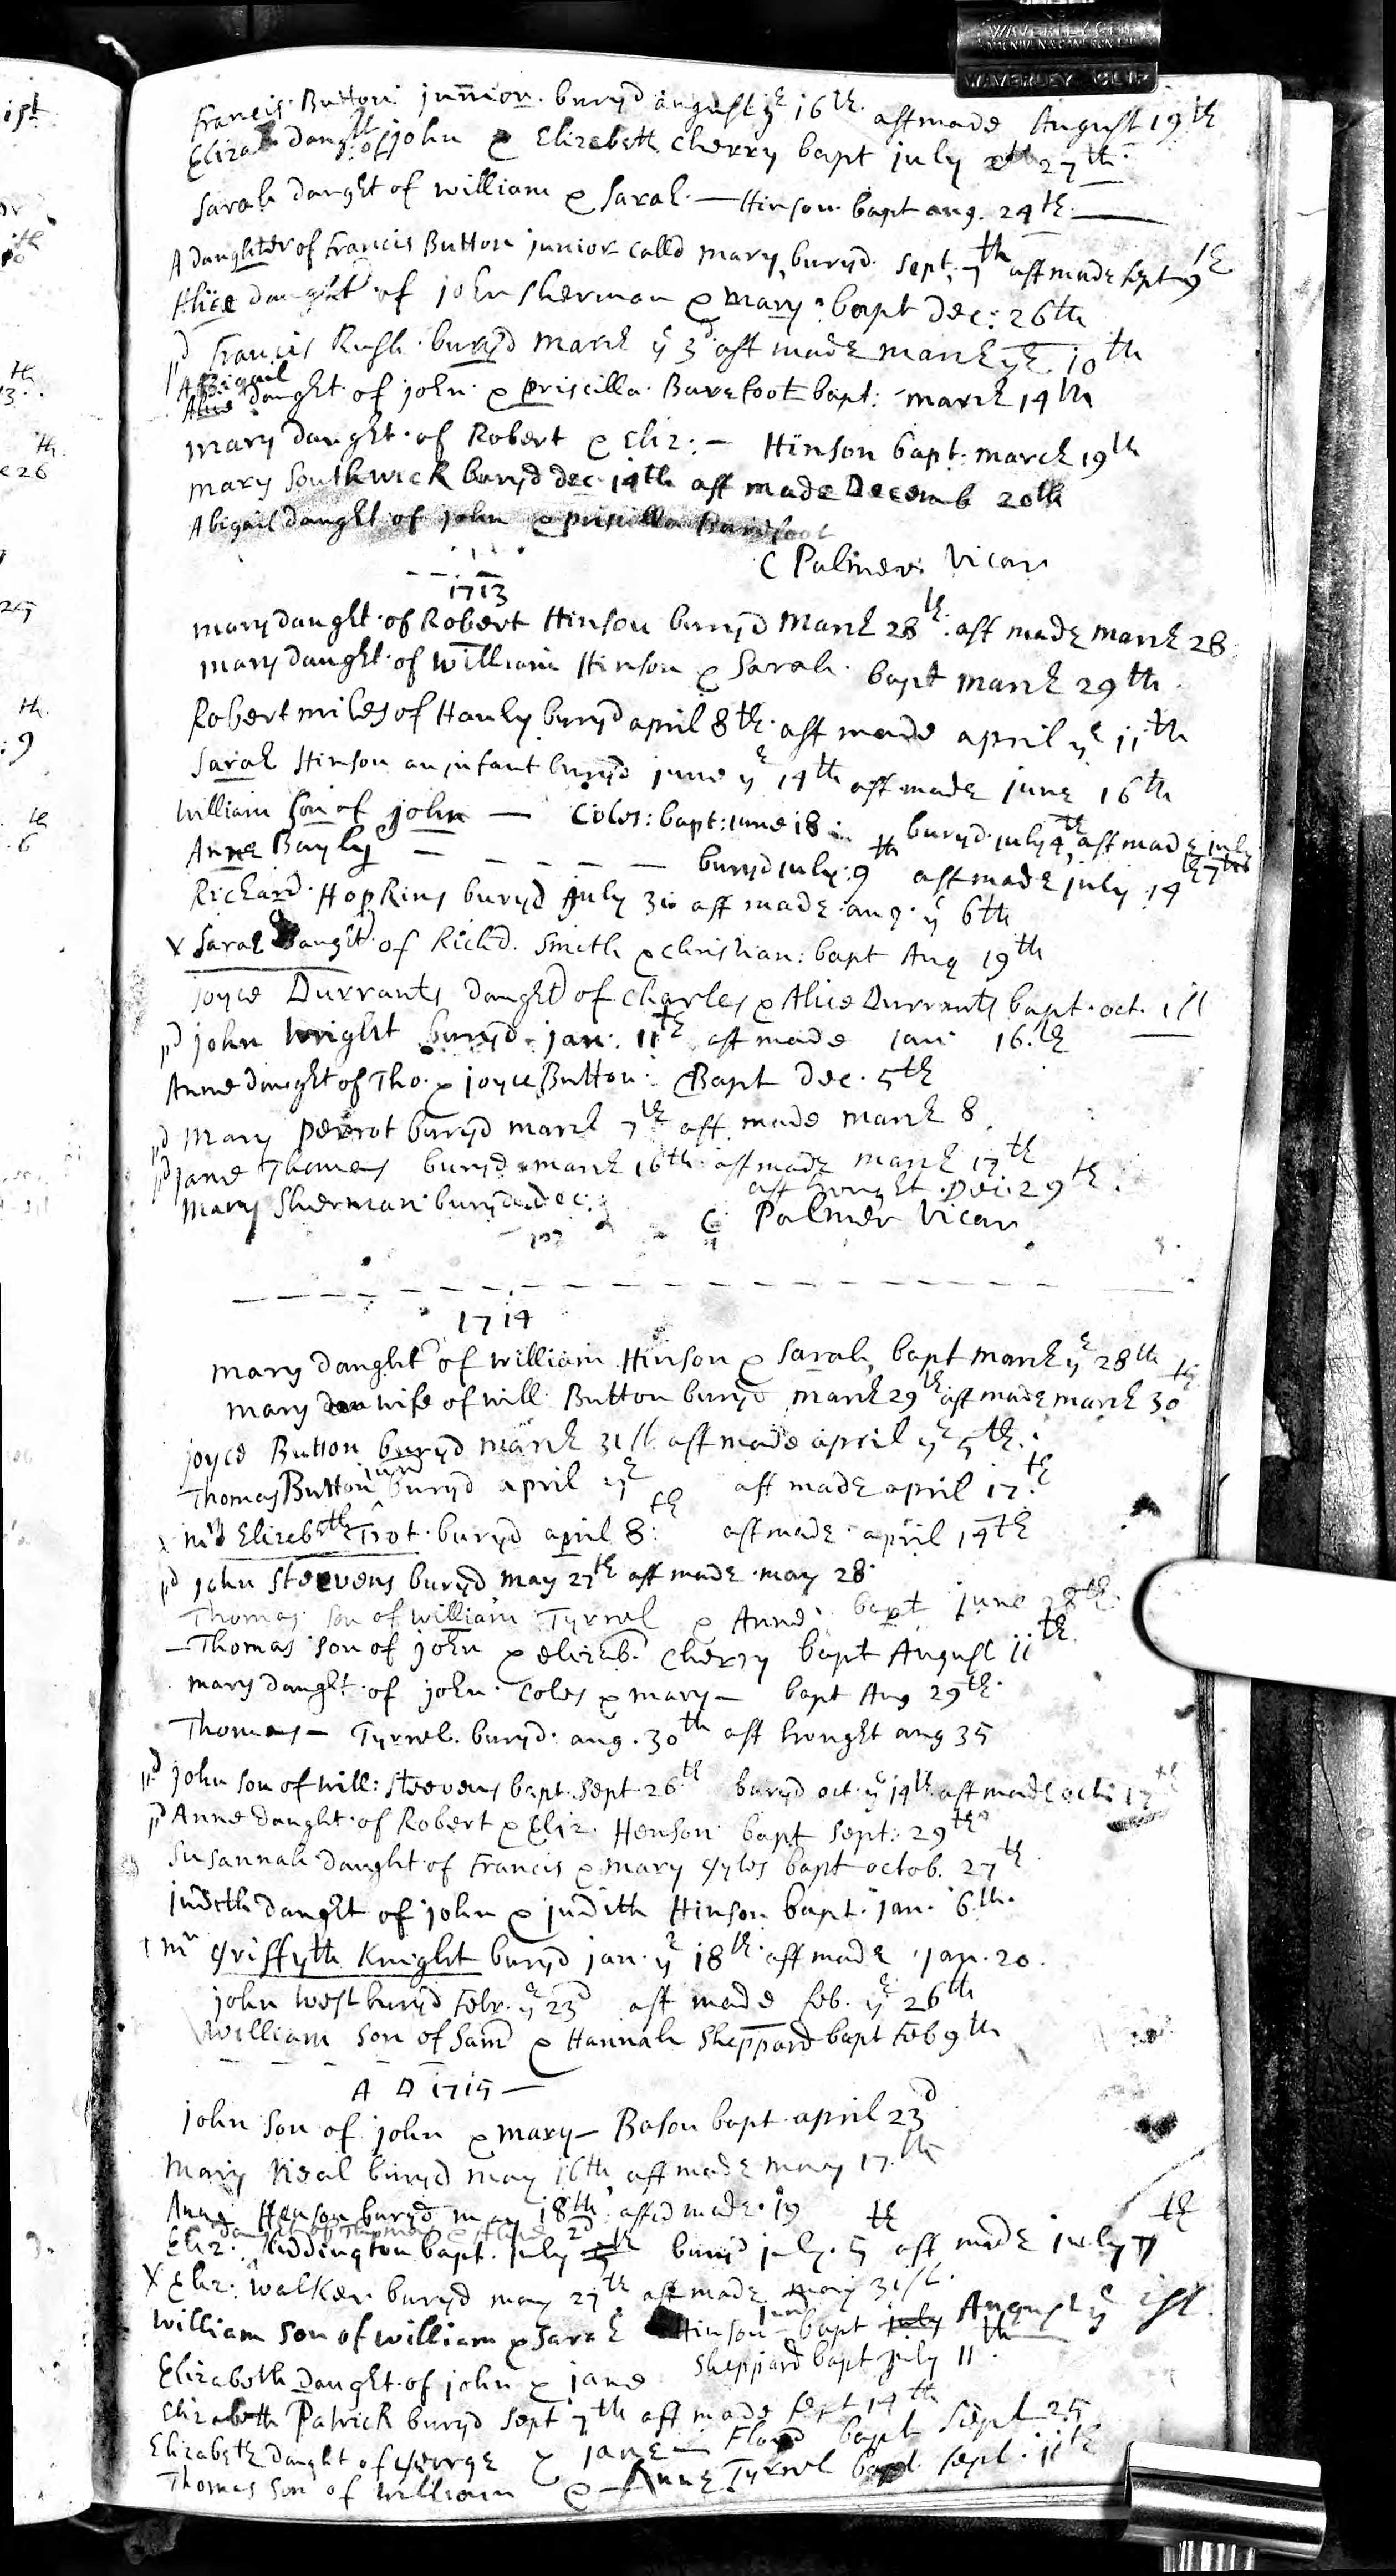 Francis Button junior buryd august ye 16th affmade August 19th
Eliza daught of john & Elizabeth Cherry bapt july 27th
Sarah daught of william & Sarah — Hinson bapt aug. 24th
A daughter of Francis Button junior calld mary, buryd Sept. 7th aff made sept 9th
Alice daught of john Sherman & mary bapt Dec: 26th
pd Francis Rush buryd march ye 3d aff made march ye 10th
Abigail
Alice daught of john & priscilla Barefoot bapt: march 14th
mary daught of Robert & Eliz: — Hinson bapt: march 19th
mary Southwick buryd dec 14th aff made Decemb 20th
Abigail daught of john & priscilla Barefoot
C Palmer Vicar
1713
mary daught of Robert Hinson buryd March 28th aff made march 28
mary daught of William Hinson & Sarah bapt march 29th
Robert miles of Hanly buryd april 8th aff made april ye 11th
Sarah Hinson an infant buryd june ye 14th aff made june 16th
William son of john — Coles: bapt: june 18 buryd july 4th aff made july 7th
Anne Bayly — — — — — buryd july 9th aff made july 14th
Richard Hopkins buryd july 31 aff made aug ye 6th
x Sarah Daught of Richd. Smith & christian: bapt Aug 19th
joyce Durrants daught of Charles & Alice Durrants bapt oct. 1st
pd john Wright buryd jan: 11th aff made jan 16th
Anne daught of Tho. & joyce Button: Bapt Dec. 5th
pd Mary Perrot buryd march 7th aff made march 8
pd jane Thomas buryd march 16th aff made march 17th
mary Sherman buryd dec: aff brought Dec: 29th
C Palmer Vicar
1714
mary daught of william Hinson & Sarah bapt march ye 28th
mary wife of will Button buryd march 29th aff made march 30th
joyce Button buryd march 31st aff made april ye 5th
Thomas Button junr buryd april ye aff made april 17th
x mrs Elizabeth Trot buryd april 8th aff made april 14th
pd john Steevens buryd may 27th aff made may 28
Thomas son of william Tyrrel & Anne bapt june 28th
— Thomas son of john & elizab. Cherry bapt August 11th
mary daught of john Coles & mary — bapt Aug 29th
Thomas — Tyrrel. buryd aug. 30th aff brought aug 35
pd john son of will: Steevens bapt. Sept 26th buryd oct. ye 14th aff made octr 17th
pd Anne daught of Robert & Eliz. Henson bapt Sept: 29th
Susannah daught of Francis & mary Gyles bapt octob. 27th
judith daught of john & judith Hinson bapt. jan. 6th
mr Griffyth Knight buryd jan ye 18th aff made jan. 20.
john West buryd Febr. ye 23d aff made feb. ye 26th
William son of Sam & Hannah Sheppard bapt Feb 9th
A D 1715 —
john son of john & mary — Bason bapt april 23d
Mary buryd may 16th aff made may 17th
Anne Henson buryd may 18th affid made 19
Eliz: daught of Liddington bapt. july 2d buryd july 5th aff made july 7th
x Eliz: Walker buryd may 27th aff made may 31st
William Son of William & Sarah Hinson junr bapt july August ye 1st
Elizabeth Daught of john & jane Sheppard bapt july 11th
Elizabeth Patrick buryd Sept 7th aff made Sept 14th
Elizabeth daught of George & jane — Floyd bapt Sept 25
Thomas son of William & — Anne Tyrrel bapt sept. 11th